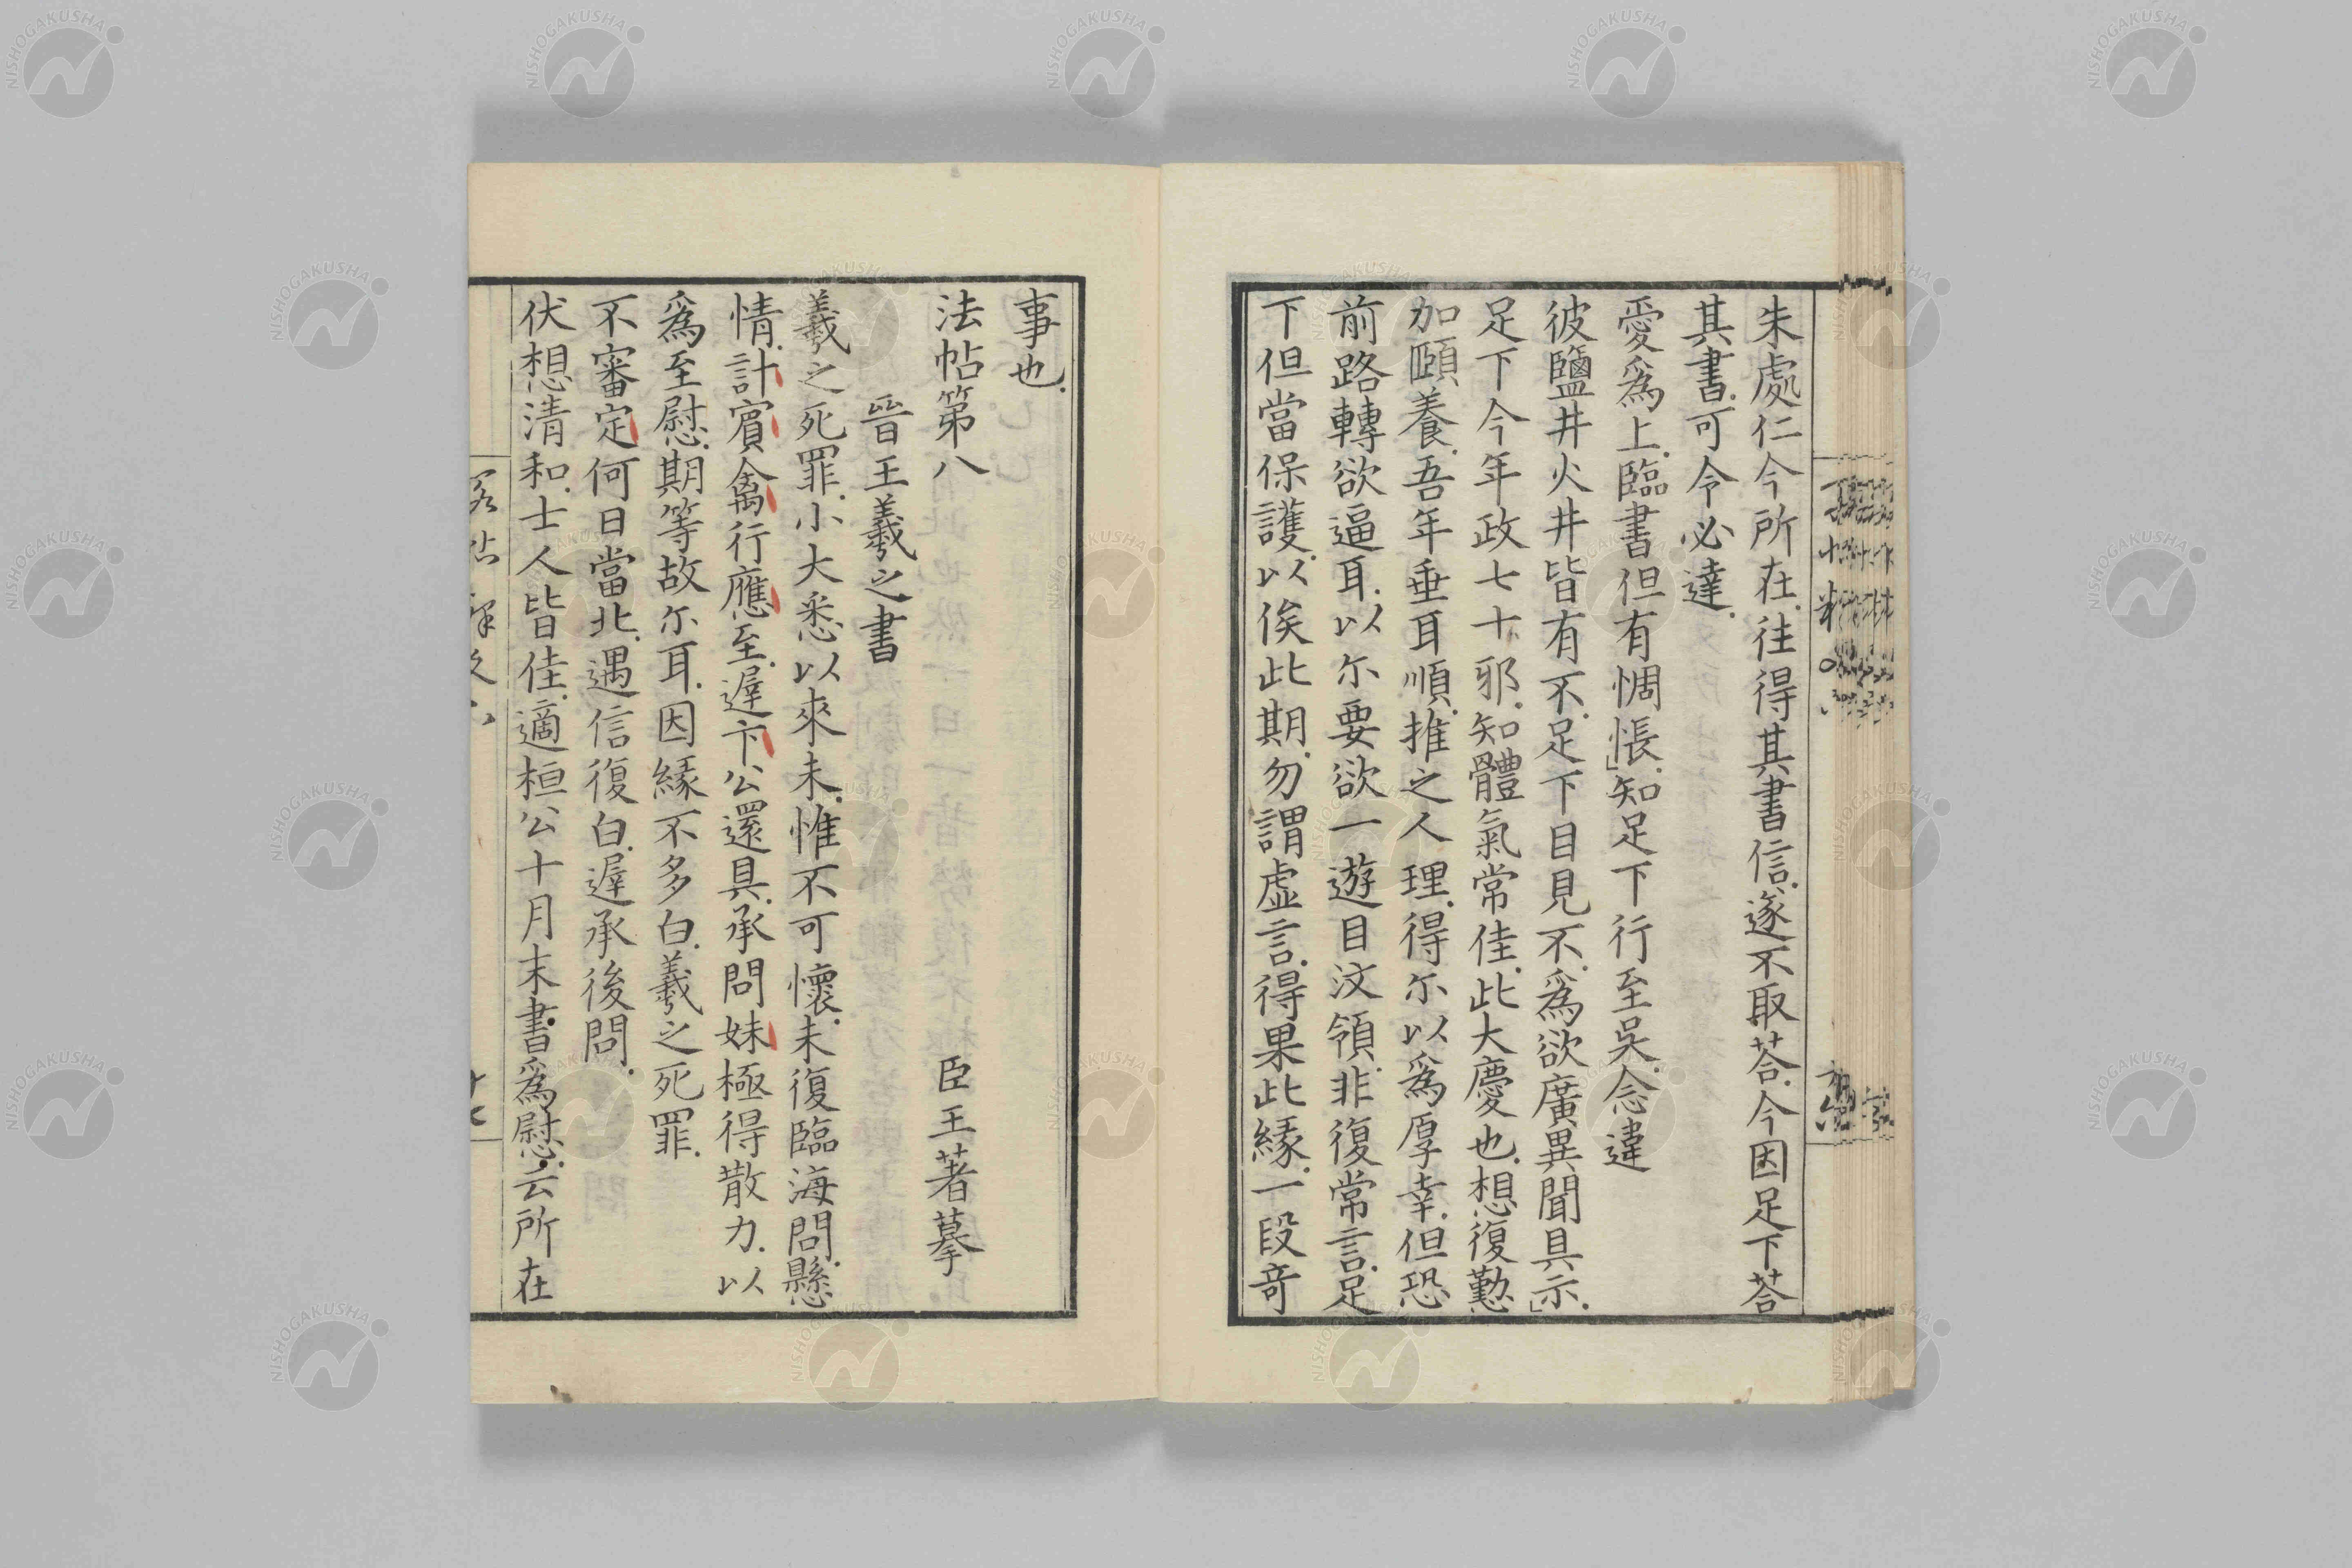 朱處仁今所在往得其書信遂不取荅今因足下荅
其書可令必達
愛爲上臨書但有惆悵知足下行至吳念違
彼鹽井火井皆有不足下目見不爲欲廣異聞具示
足下今年政七十邪知體氣常佳此大慶也想復懃
加頤養吾年垂耳順推之人理得尒以爲厚幸但恐
前路轉欲逼耳以尒要欲一遊目汶領非復常言足
下但當保護以俟此期勿謂虛言得果此緣一段奇
事也
法帖第八
臣王著摹
晉王羲之書
羲之死罪小大悉以來未惟不可懷未復臨海問懸
情計賓禽行應至遲卞公還具承問妹極得散力以
爲至慰期等故尒耳因緣不多白羲之死罪
不審定何日當北遇信復白遲承後問
伏想清和士人皆佳適桓公十月末書爲慰云所在
NISHOGAKUSHA